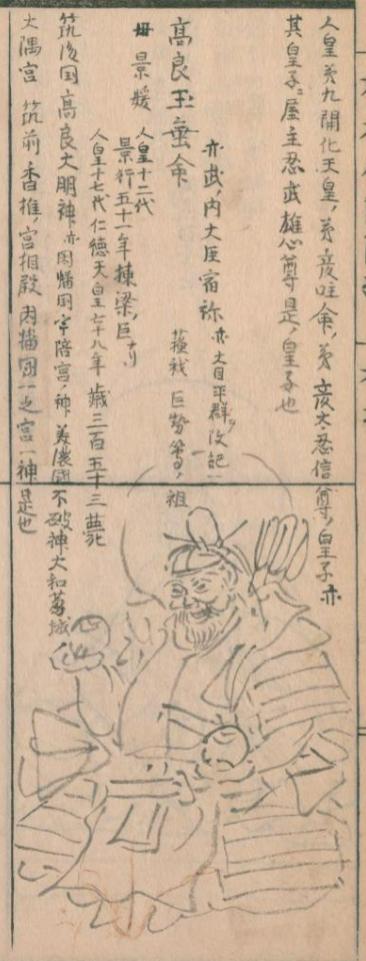 人皇第九開化天皇ノ第彦吐命ノ第彦太忍信尊ノ皇王子亦
其皇子ニ屋主忍武雄心尊是ノ皇子也
高良玉垂命
亦武ノ内大臣宿祢
亦大目平群ノ
巨勢等ノ祖
母景媛
人皇十二代
景行五十一年棟梁ノ臣ナリ
人皇十七代仁徳天皇七十八年歳三百五十三薨
筑後国高良大明神亦因幡国宇陪宮ノ神美濃國不破神大和葛城
大隅宮筑前香推ノ宮相殿因幡国一之宮一神是也